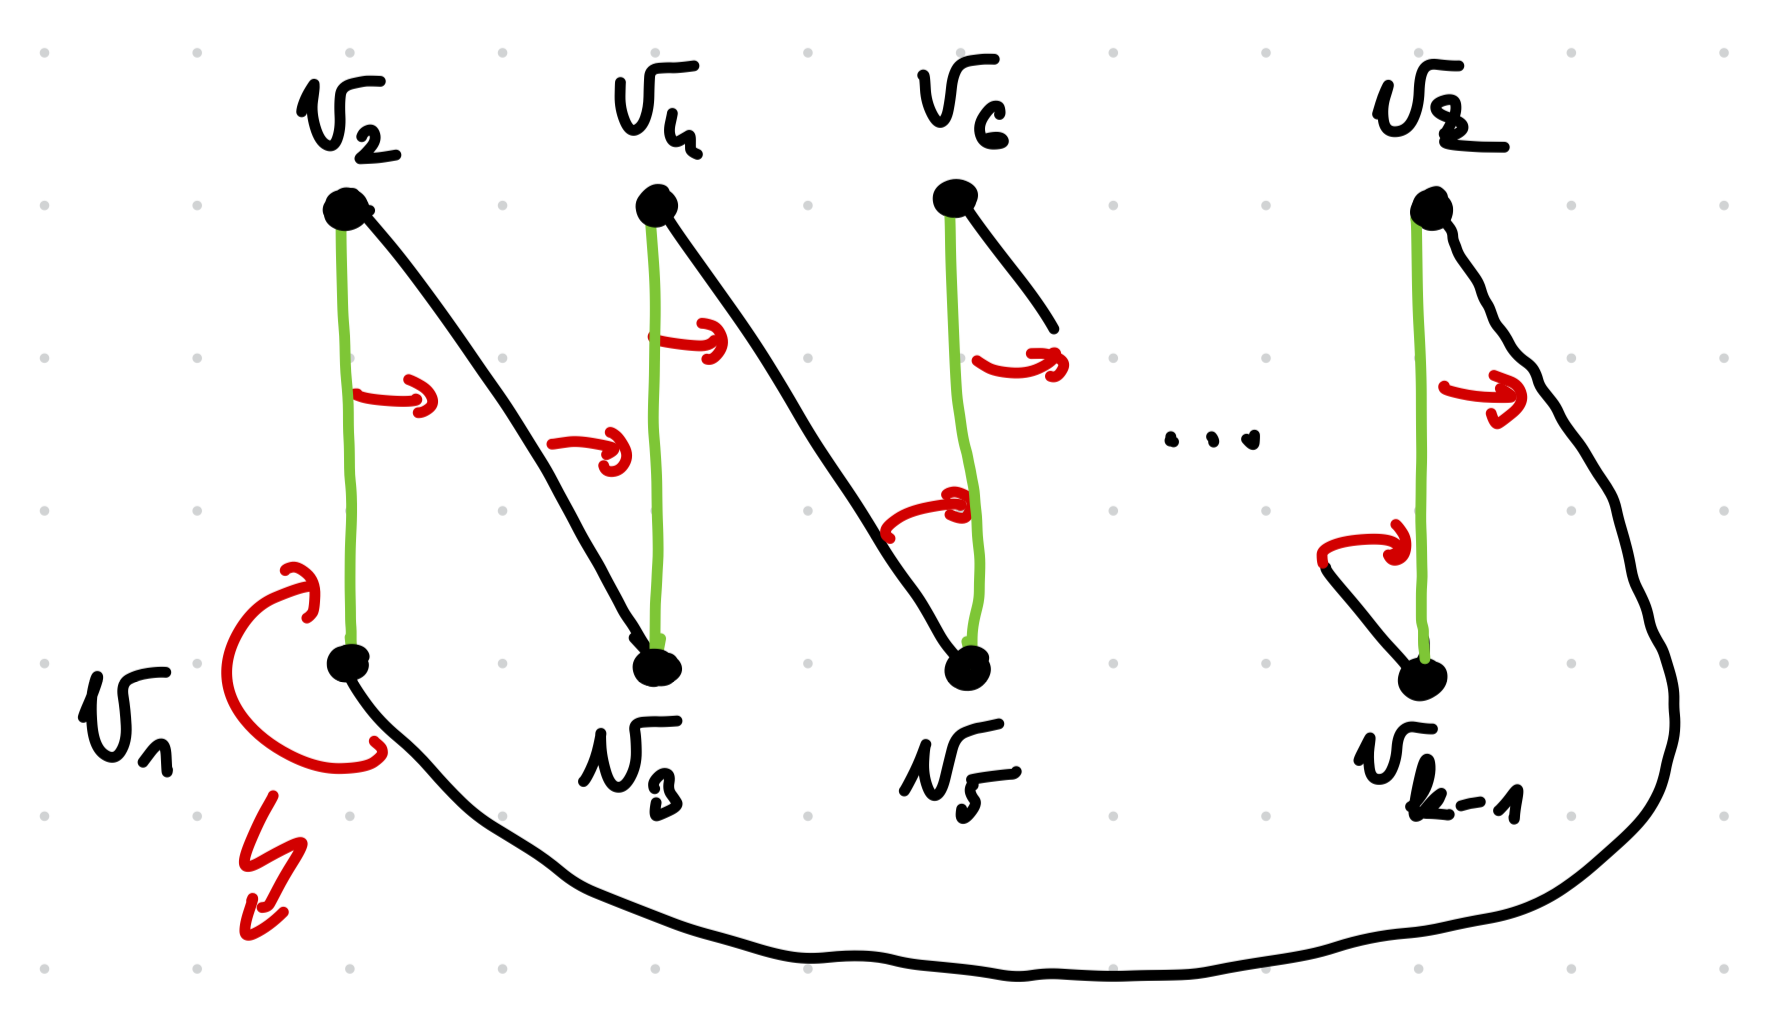 v₂ v₄ v₆ vₖ
...
v₁ v₃ v₅ vₖ₋₁